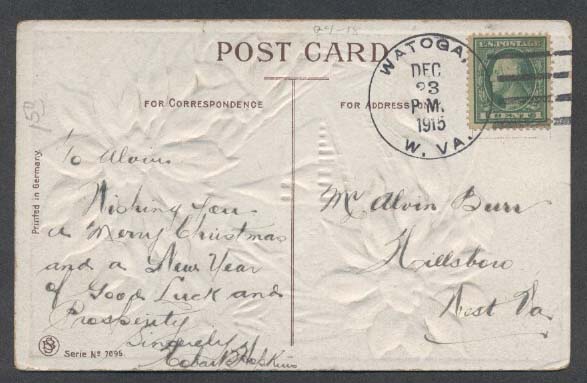 POST CARD
WATOGA,
DEC
23
P.M.
1915
W. VA.
U.S. POSTAGE
CENTS
FOR CORRESPONDENCE
FOR ADDRESS ONLY
150
Printed in Germany
To Alvin
Wishing you
a Merry Christmas
and a New Year
of Good Luck and
Prosperity
Sincerely
Hopkins
Mr Alvin Burr
Hillsboro
West Va
Serie No 7695